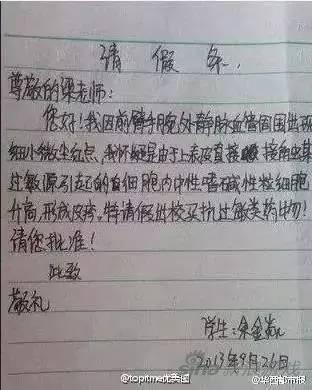 请假条
尊敬的梁老师:
您好!我因前臂手腕外静脉血管周围出现
细小微尘红点,我怀疑是由于上表皮直接接触某
过敏源引起的白细胞内中性嗜碱性粒细胞
升高,形成皮疹,特请假进校买抗过敏类药物!
请您批准!
此致
敬礼
学生:余金
2013年9月26日
@topitme优美图
@华西都市报